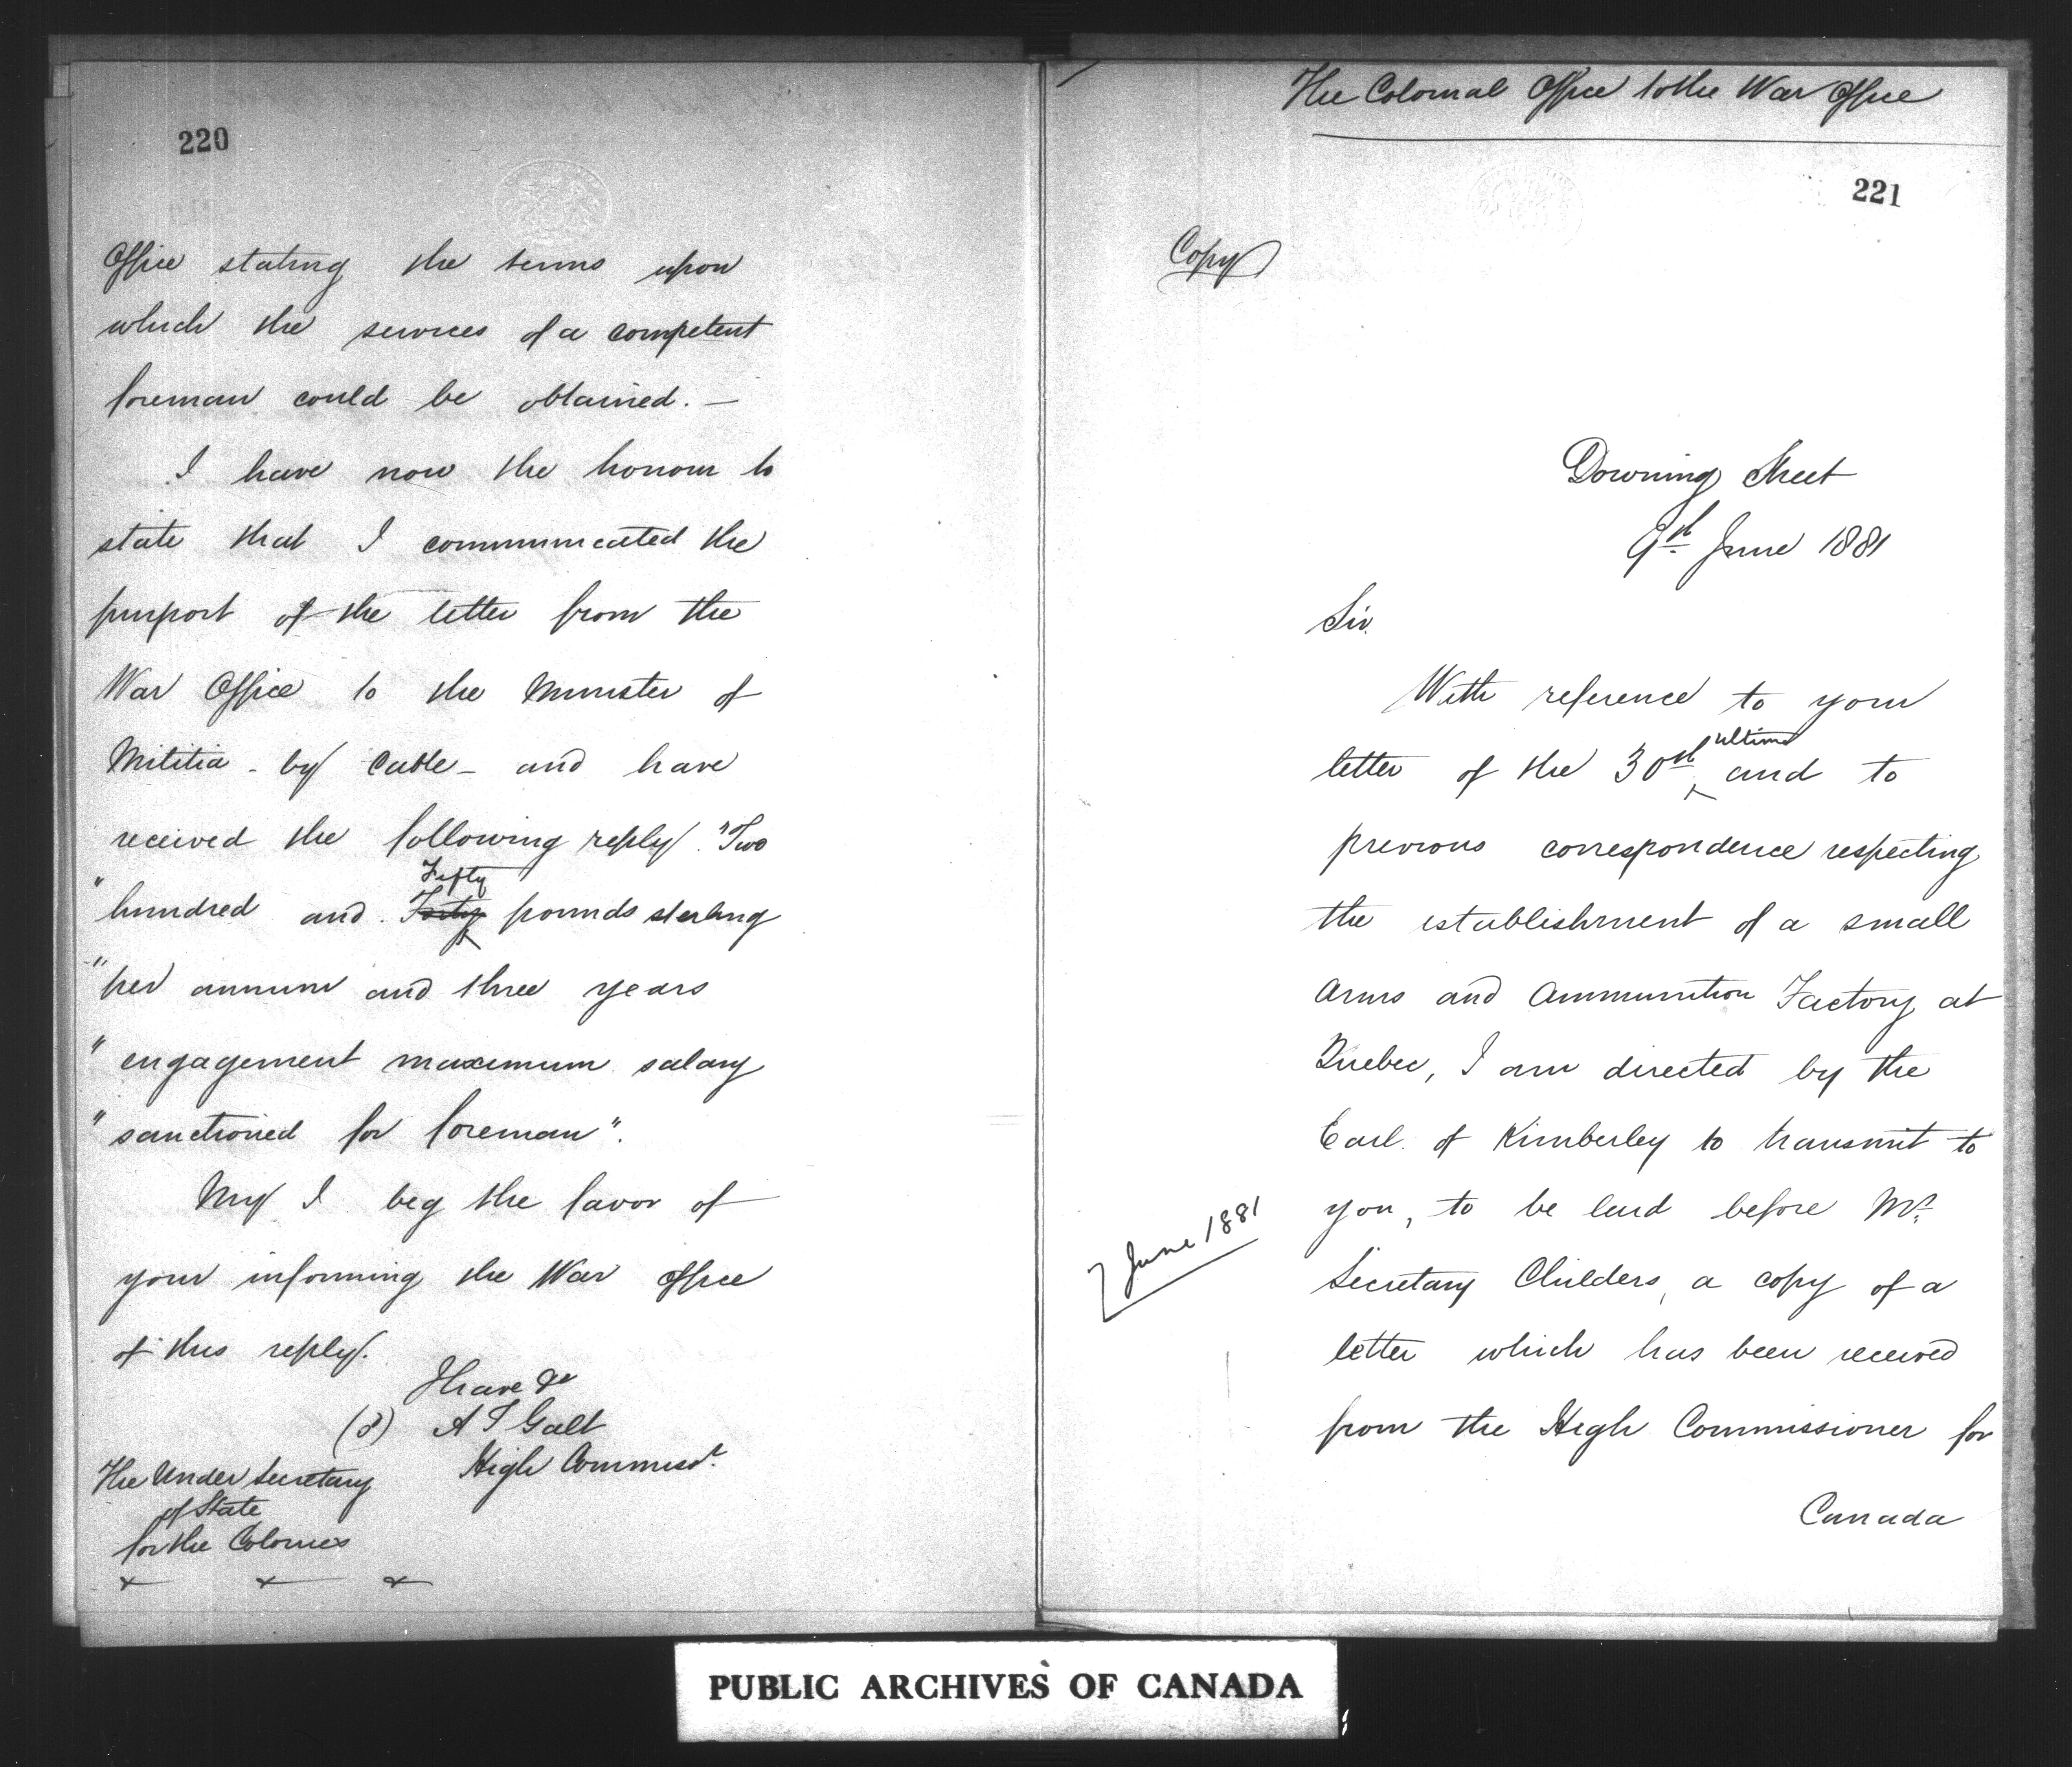 220
Office stating the terms upon
which the services of a competent
foreman could be obtained. —
I have now the honour to
state that I communicated the
purport of the letter from the
War Office to the Minister of
Militia - by Cable - and have
received the following reply. "Two
Fifty
"hundred and Forty pounds sterling
"per annum and three years
"engagement maximum salary
"sanctioned for foreman".
My I beg the favor of
your informing the War Office
of this reply.
I have &c
(s) A T Galt
High Commissr.
The Under Secretary
of State
for the Colonies
The Colonial Office to the War Office
221
Copy
Downing Street
9th June 1881
Sir.
With reference to your
ultimo
letter of the 30th and to
previous correspondence respecting
the establishment of a small
Arms and Ammunition Factory at
Quebec, I am directed by the
Earl of Kimberley to transmit to
you, to be laid before Mr.
7 June 1881
Secretary Childers, a copy of a
letter which has been received
from the High Commissioner for
Canada
PUBLIC ARCHIVES OF CANADA